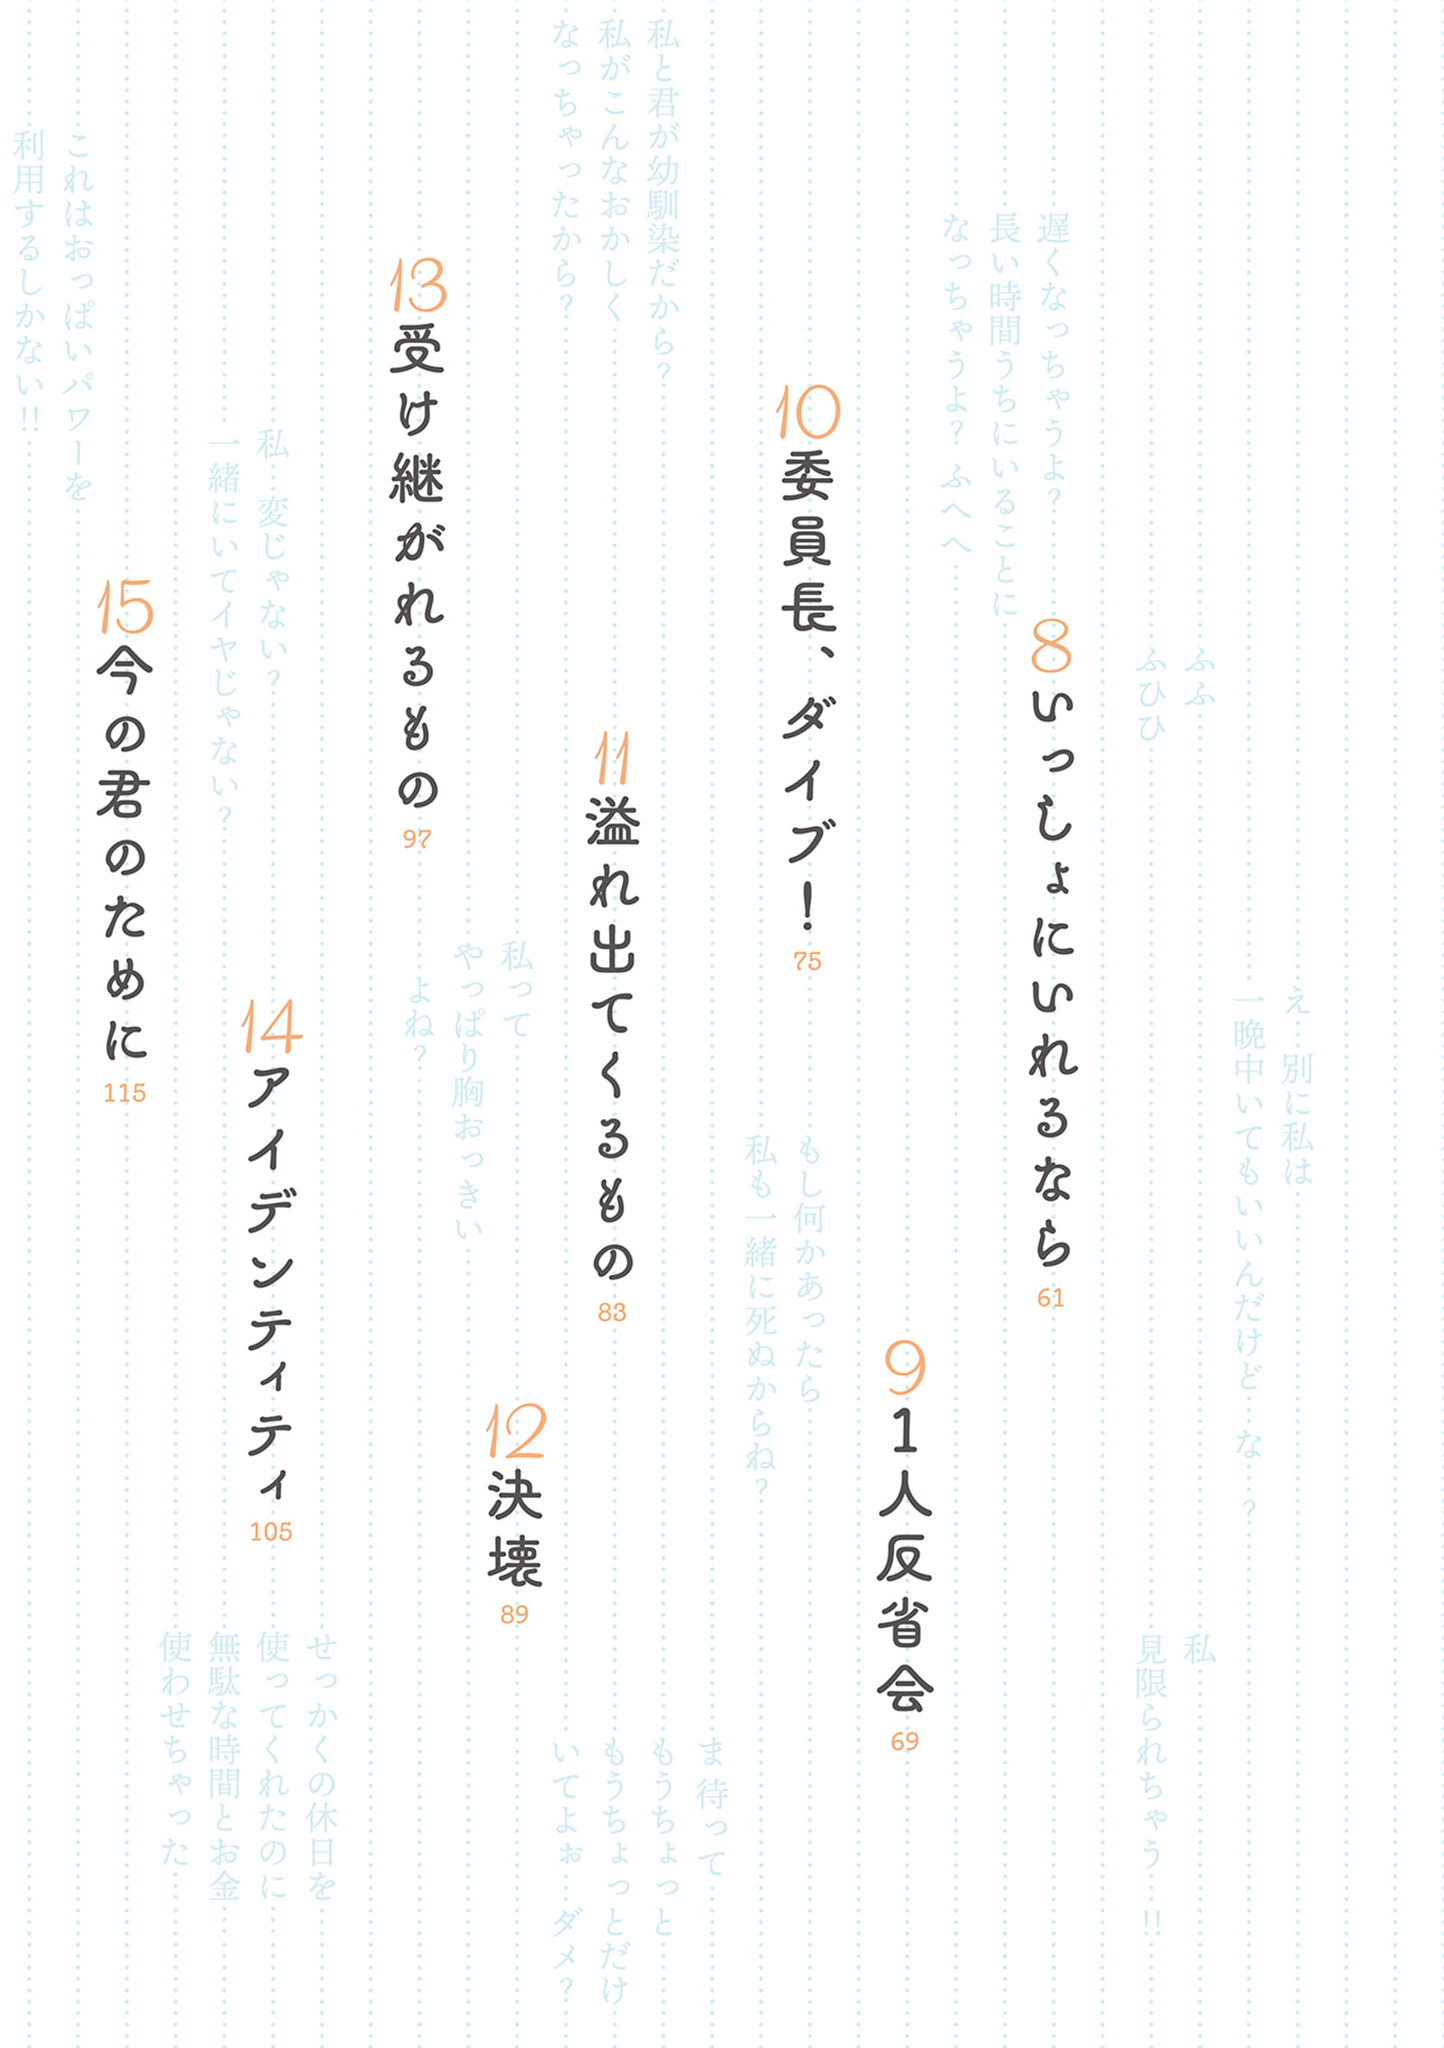 え 別に私は
一晩中いてもいいんだけど な ?
ふふ
ふひひ
私
見限られちゃう !!
遅くなっちゃうよ?
長い時間うちにいることに
なっちゃうよ? ふへへ
8 いっしょにいれるなら 61
9 1人反省会 69
10 委員長、ダイブ! 75
もし何かあったら
私も一緒に死ぬからね?
私と君が幼馴染だから?
私がこんなおかしく
なっちゃったから?
11 溢れ出てくるもの 83
ま 待って
もうちょっと
もうちょっとだけ
いてよぉ ダメ?
12 決壊 89
私って
やっぱり胸おっきい
よね?
13 受け継がれるもの 97
私 変じゃない?
一緒にいてイヤじゃない?
14 アイデンティティ 105
せっかくの休日を
使ってくれたのに
無駄な時間とお金
使わせちゃった
15 今の君のために 115
これはおっぱいパワーを
利用するしかない!!